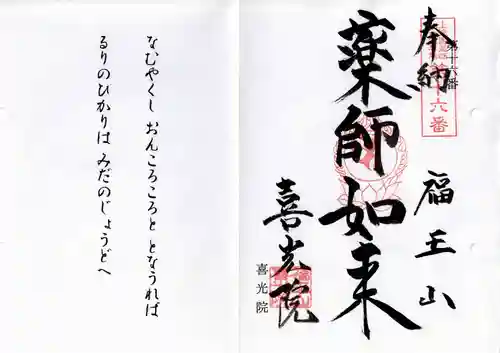 奉納
第十六番
十六番
福王山
薬師如来
喜光院
喜光院
なむやくし おんころころと となうれば
るりのひかりは みだのじょうどへ